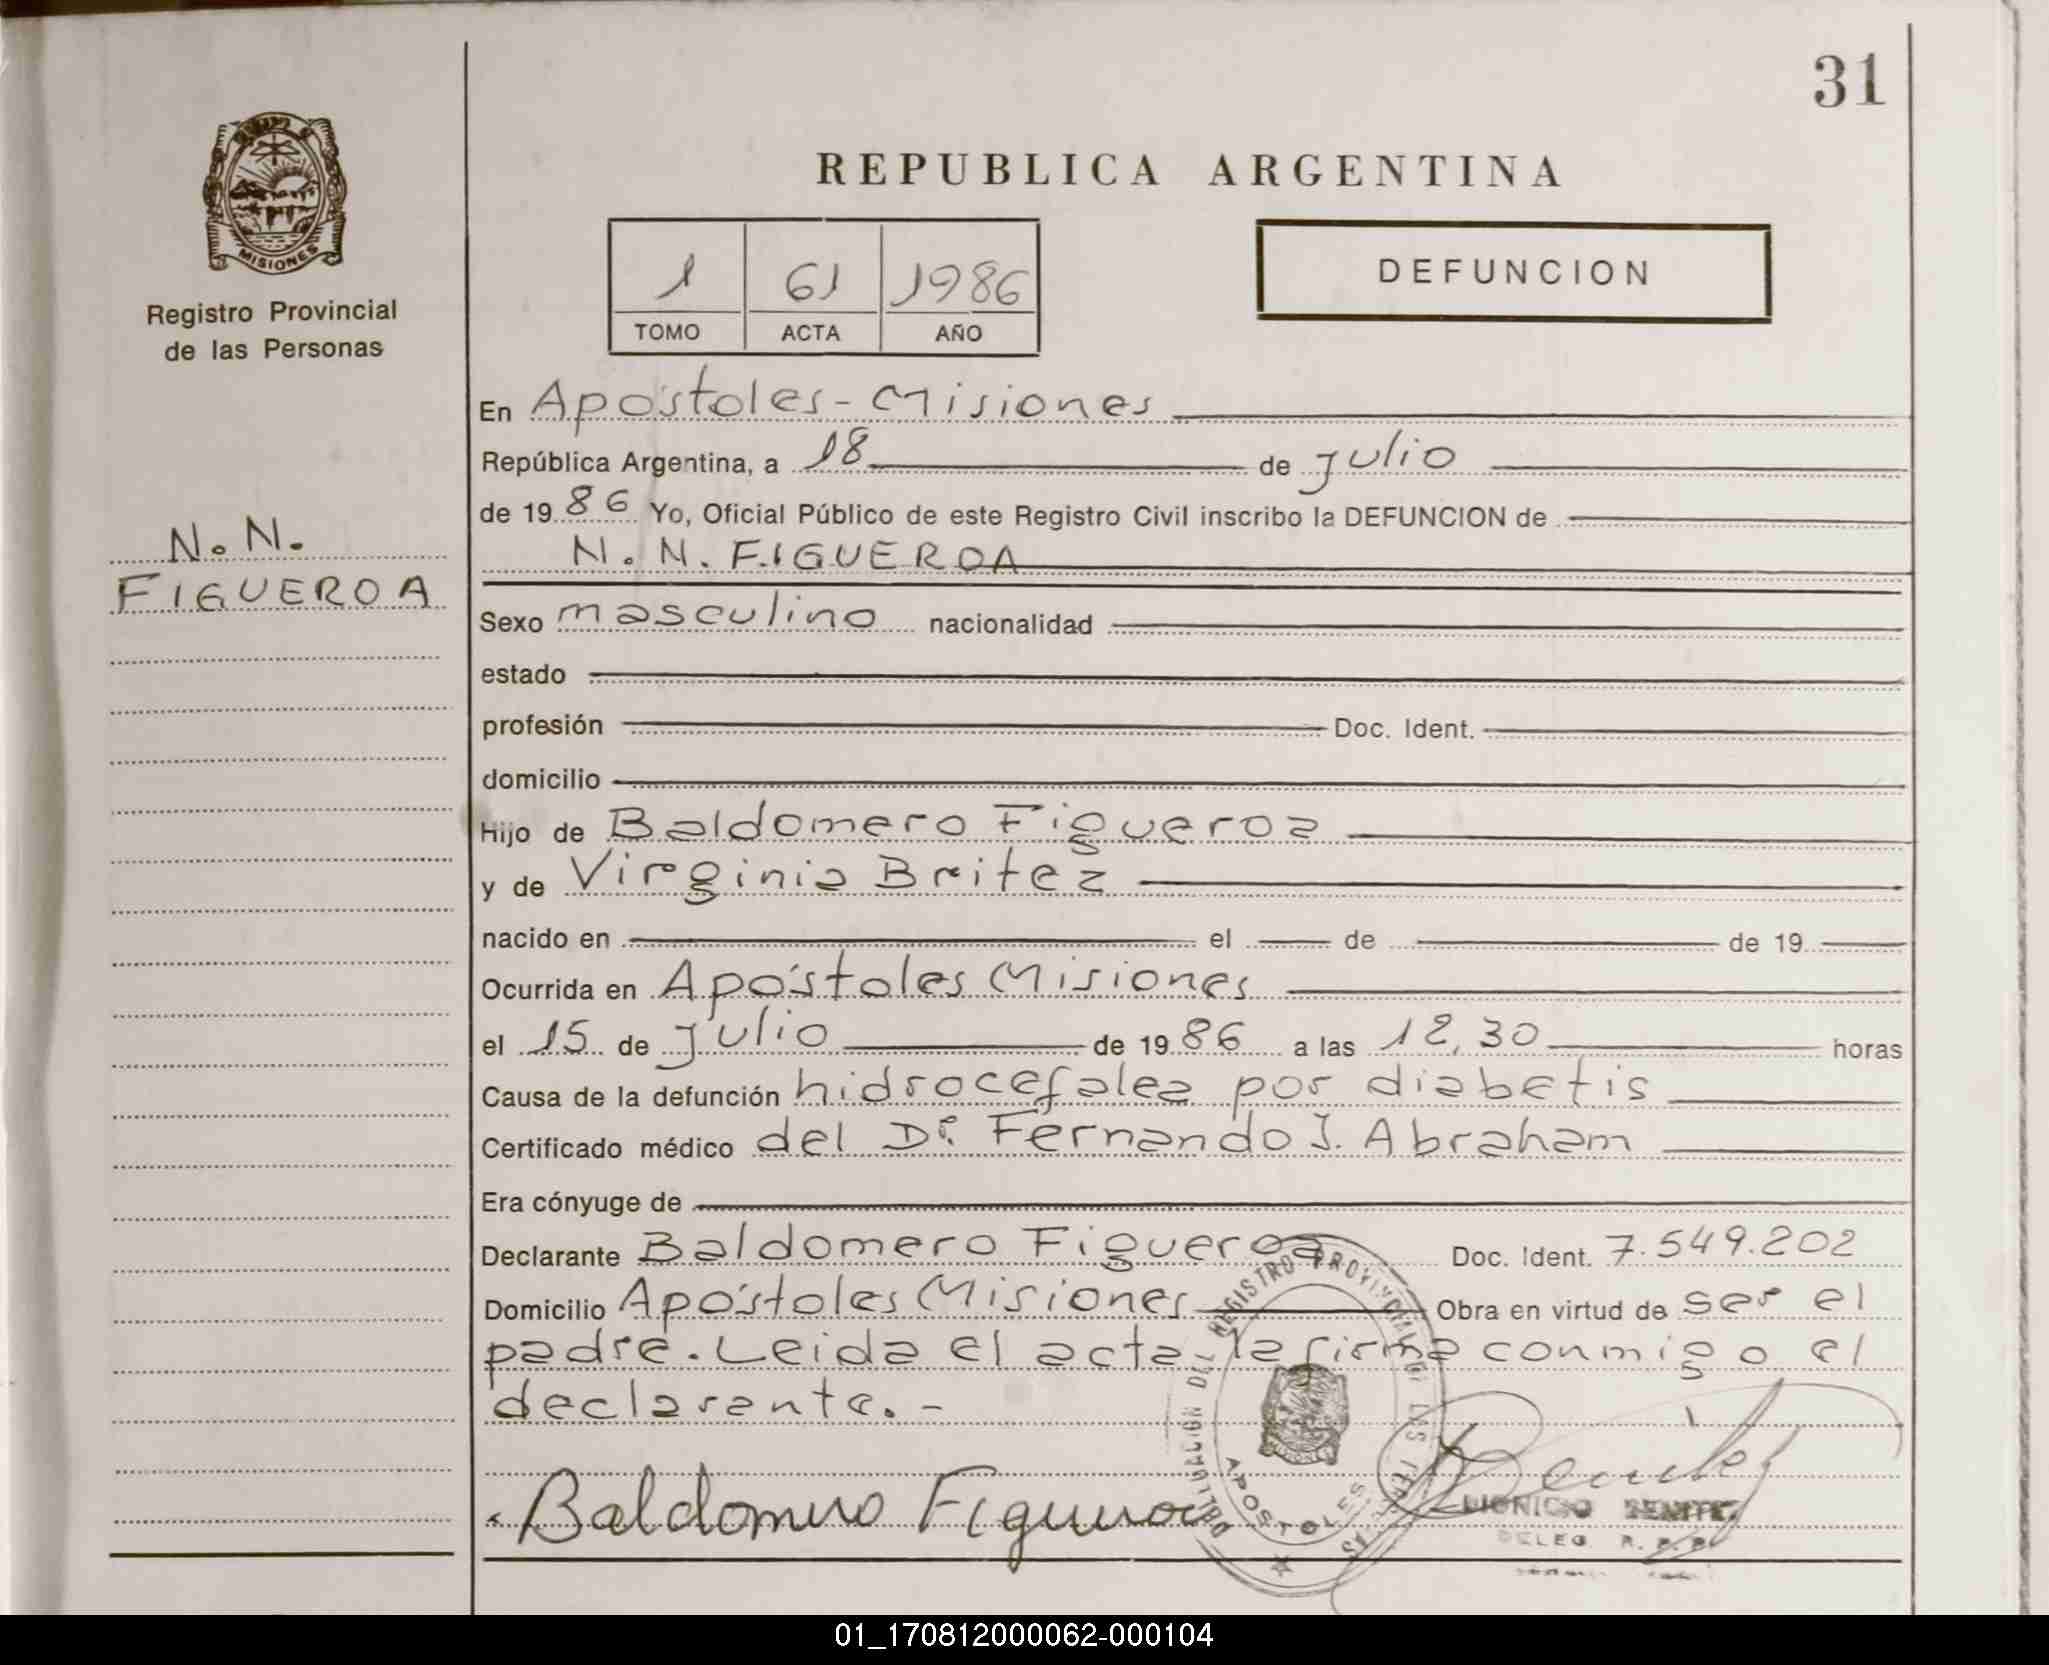 31
REPUBLICA ARGENTINA
MISIONES
Registro Provincial
de las Personas
1 61 1986
TOMO ACTA AÑO
DEFUNCION
N. N.
FIGUEROA
En Apóstoles - Misiones
República Argentina, a 18 de julio
de 1986 Yo, Oficial Público de este Registro Civil inscribo la DEFUNCION de
N. N. FIGUEROA
Sexo masculino nacionalidad
estado
profesión Doc. Ident.
domicilio
Hijo de Baldomero Figueroa
y de Virginia Britez
nacido en el de de 19
Ocurrida en Apóstoles Misiones
el 15 de julio de 1986 a las 12,30 horas
Causa de la defunción hidrocefalea por diabetis
Certificado médico del Dr. Fernando J. Abraham
Era cónyuge de
Declarante Baldomero Figueroa Doc. Ident. 7.549.202
Domicilio Apóstoles Misiones Obra en virtud de ser el
padre. Leida el acta la firma conmigo el
declarante. -
Baldomero Figueroa
DEL REGISTRO PROVINCIAL DE LAS
APOSTOLES
DELEG. R. P. P.
01_170812000062-000104